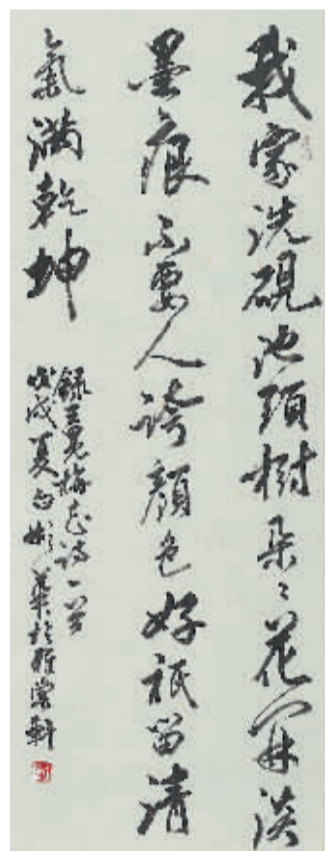 我家洗硯池頭樹朵〻花開淡
墨痕不要人誇顏色好祇留清
氣滿乾坤
錄王冕梅花詩一首
戊戌夏彬華於軒